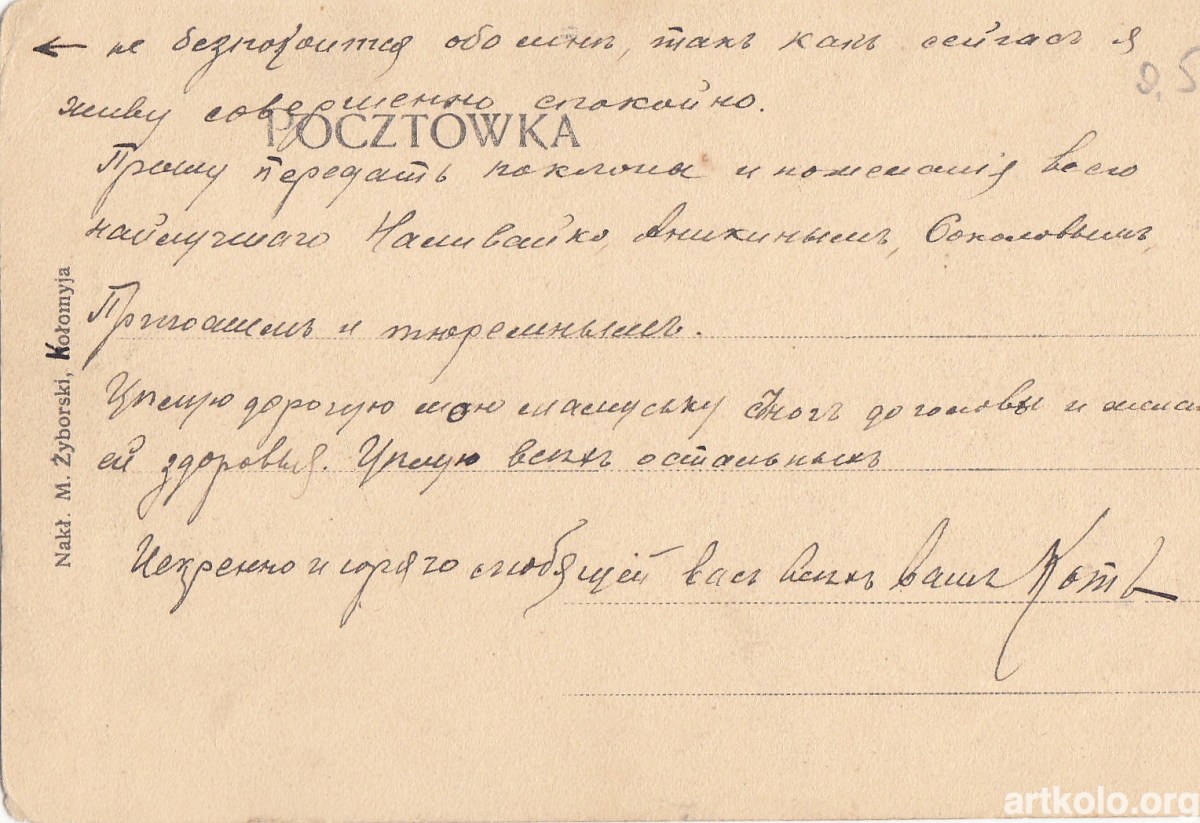 ← не безпокоится обо мнѣ, такъ какъ сейчасъ я
0,5
живу совершенно спокойно.
POCZTÓWKA
Прошу передать поклоны и пожеланія всего
найлучшаго Наливайко, Аникинымъ, Соколовымъ,
и тюремнымъ.
Цѣлую дорогую мою мамуську съ ногъ до головы и
ей здоровья. Цѣлую всѣхъ остальныхъ
Искренно и горячо любящей васъ всѣхъ вашъ Котъ
Nakł. M. Żyborski, Kołomyja
artkolo.org